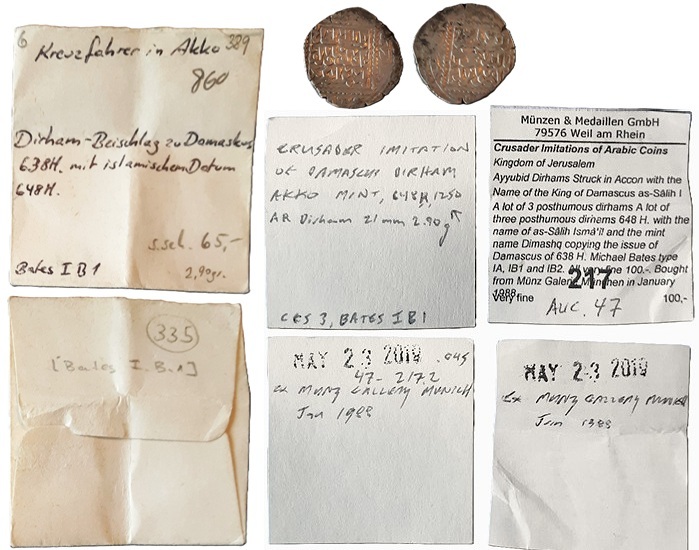 6
Kreuzfahrer in Akko 329
860
Dirham-Beischlag zu Domaskus
638H. mit islamischem Datum
648H.
s.sch. 65,-
Bates I B 1
2,90gr.
335
[Bates I. B.1]
CRUSADER IMITATION
OF DAMASCUS DIRHAM
AKKO MINT, 648H, 1250
AR Dirham 21mm 2.90g
CCS 3, BATES I B 1
MAY 23 2019 .045
47-2172
EX MUNZ GALLERY MUNICH
Jan 1988
Münzen & Medaillen GmbH
79576 Weil am Rhein
Crusader Imitations of Arabic Coins
Kingdom of Jerusalem
Ayyubid Dirhams Struck in Accon with the
Name of the King of Damascus as-Sâlih I
A lot of 3 posthumous dirhams A lot of
three posthumous dirhems 648 H. with the
name of as-Sâlih Ismâ'îl and the mint
name Dimashq copying the issue of
Damascus of 638 H. Michael Bates type
IA, IB1 and IB2. All very fine 100.-. Bought
from Münz Galerie München in January
1988
217
Very fine 100,-
AUC. 47
MAY 23 2019
Ex MUNZ GALLERY MUNICH
Jan 1988